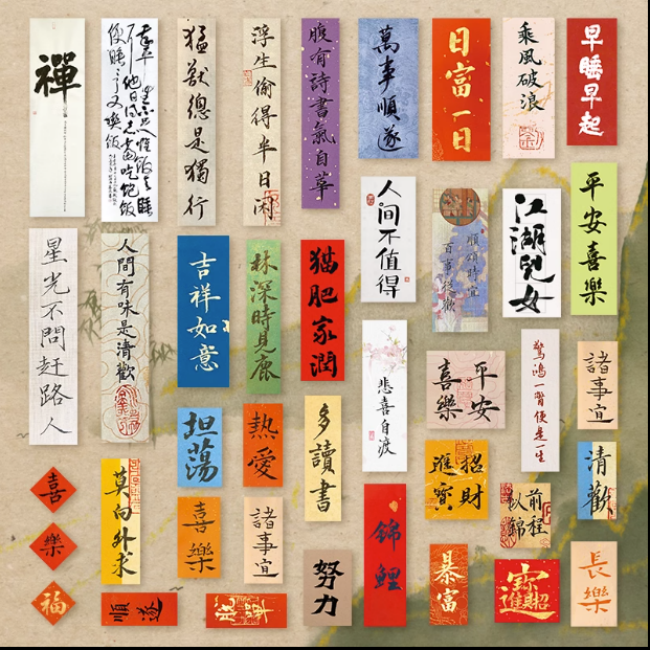 禪
猛獸總是獨行
浮生偷得半日闲
腹有詩書氣自華
萬事順遂
日富一日
乘風破浪
早睡早起
星光不問赶路人
人間有味是清歡
吉祥如意
林深時見鹿
貓肥家潤
人间不值得
順頌時宜
百事從歡
江湖兒女
平安喜樂
悲喜自渡
平安
喜樂
驚鴻一瞥便是一生
諸事宜
坦蕩
熱愛
多讀書
招財
進寶
清歡
喜
樂
福
莫向外求
喜樂
諸事宜
努力
錦鯉
前程
似錦
暴富
招財進寶
長樂
順遂